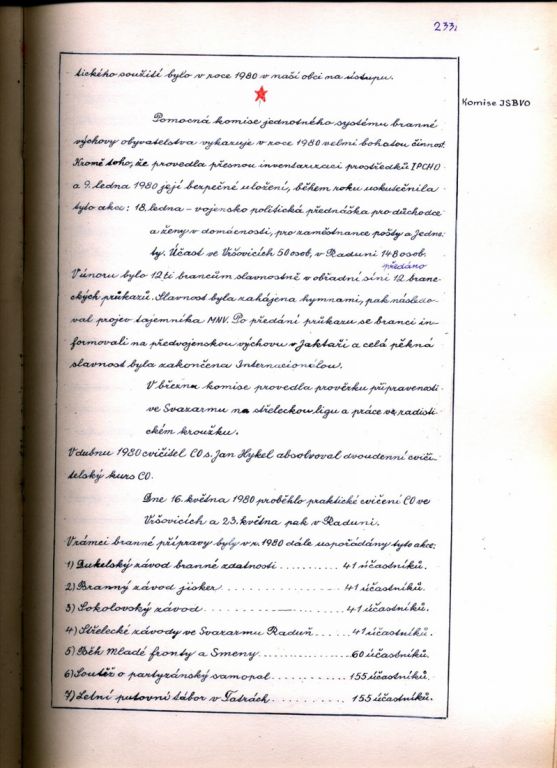 233.
tického soužití bylo v roce 1980 v naší obci na ústupu.
Komise JSBVO
Pomocná komise jednotného systému branné
výchovy obyvatelstva vykazuje v roce 1980 velmi bohatou činnost.
Kromě toho, že provedla přesnou inventarizaci prostředků IPCHO
a 9. ledna 1980 její bezpečné uložení, během roku uskutečnila
tyto akce: 18. ledna - vojensko politická přednáška pro důchodce
a ženy v domácnosti, pro zaměstnance pošty a Jedno-
ty. Účast ve Vršovicích 50 osob, v Raduni 148 osob.
předáno
V únoru bylo 12 ti brancům slavnostně v obřadní síni 12 brane-
ckých průkazů. Slavnost byla zahájena hymnami, pak následo-
val projev tajemníka MNV. Po předání průkazu se branci in-
formovali na předvojenskou výchovu v Jaktaři a celá pěkná
slavnost byla zakončena Internacionálou.
V březnu komise provedla prověrku připravenosti
ve Svazarmu na střeleckou ligu a práce v radisti-
ckém kroužku.
V dubnu 1980 cvičitel CO s. Jan Hykel absolvoval dvoudenní cviči-
telský kurs CO.
Dne 16. května 1980 proběhlo praktické cvičení CO ve
Vršovicích a 23. května pak v Raduni.
V rámci branné přípravy byly v r. 1980 dále uspořádány tyto akce:
1) Dukelský závod branné zdatnosti .......... 41 účastníků.
2) Branný závod jisker .................... 41 účastníků.
3) Sokolovský závod ...................... 41 účastníků.
4) Střelecké závody ve Svazarmu Raduň ...... 41 účastníků.
5) Běh Mladé fronty a Smeny .............. 60 účastníků.
6) Soutěž o partyzánský samopal ........... 155 účastníků.
7) Letní putovní tábor v Tatrách ........... 155 účastníků.